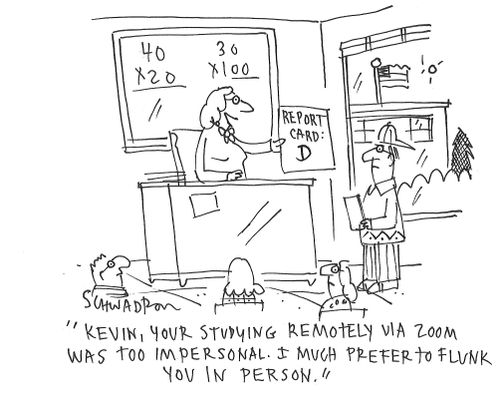 40
X20
30
X100
REPORT
CARD:
D
SCHWADRON
"KEVIN, YOUR STUDYING REMOTELY VIA ZOOM
WAS TOO IMPERSONAL. I MUCH PREFER TO FLUNK
YOU IN PERSON."